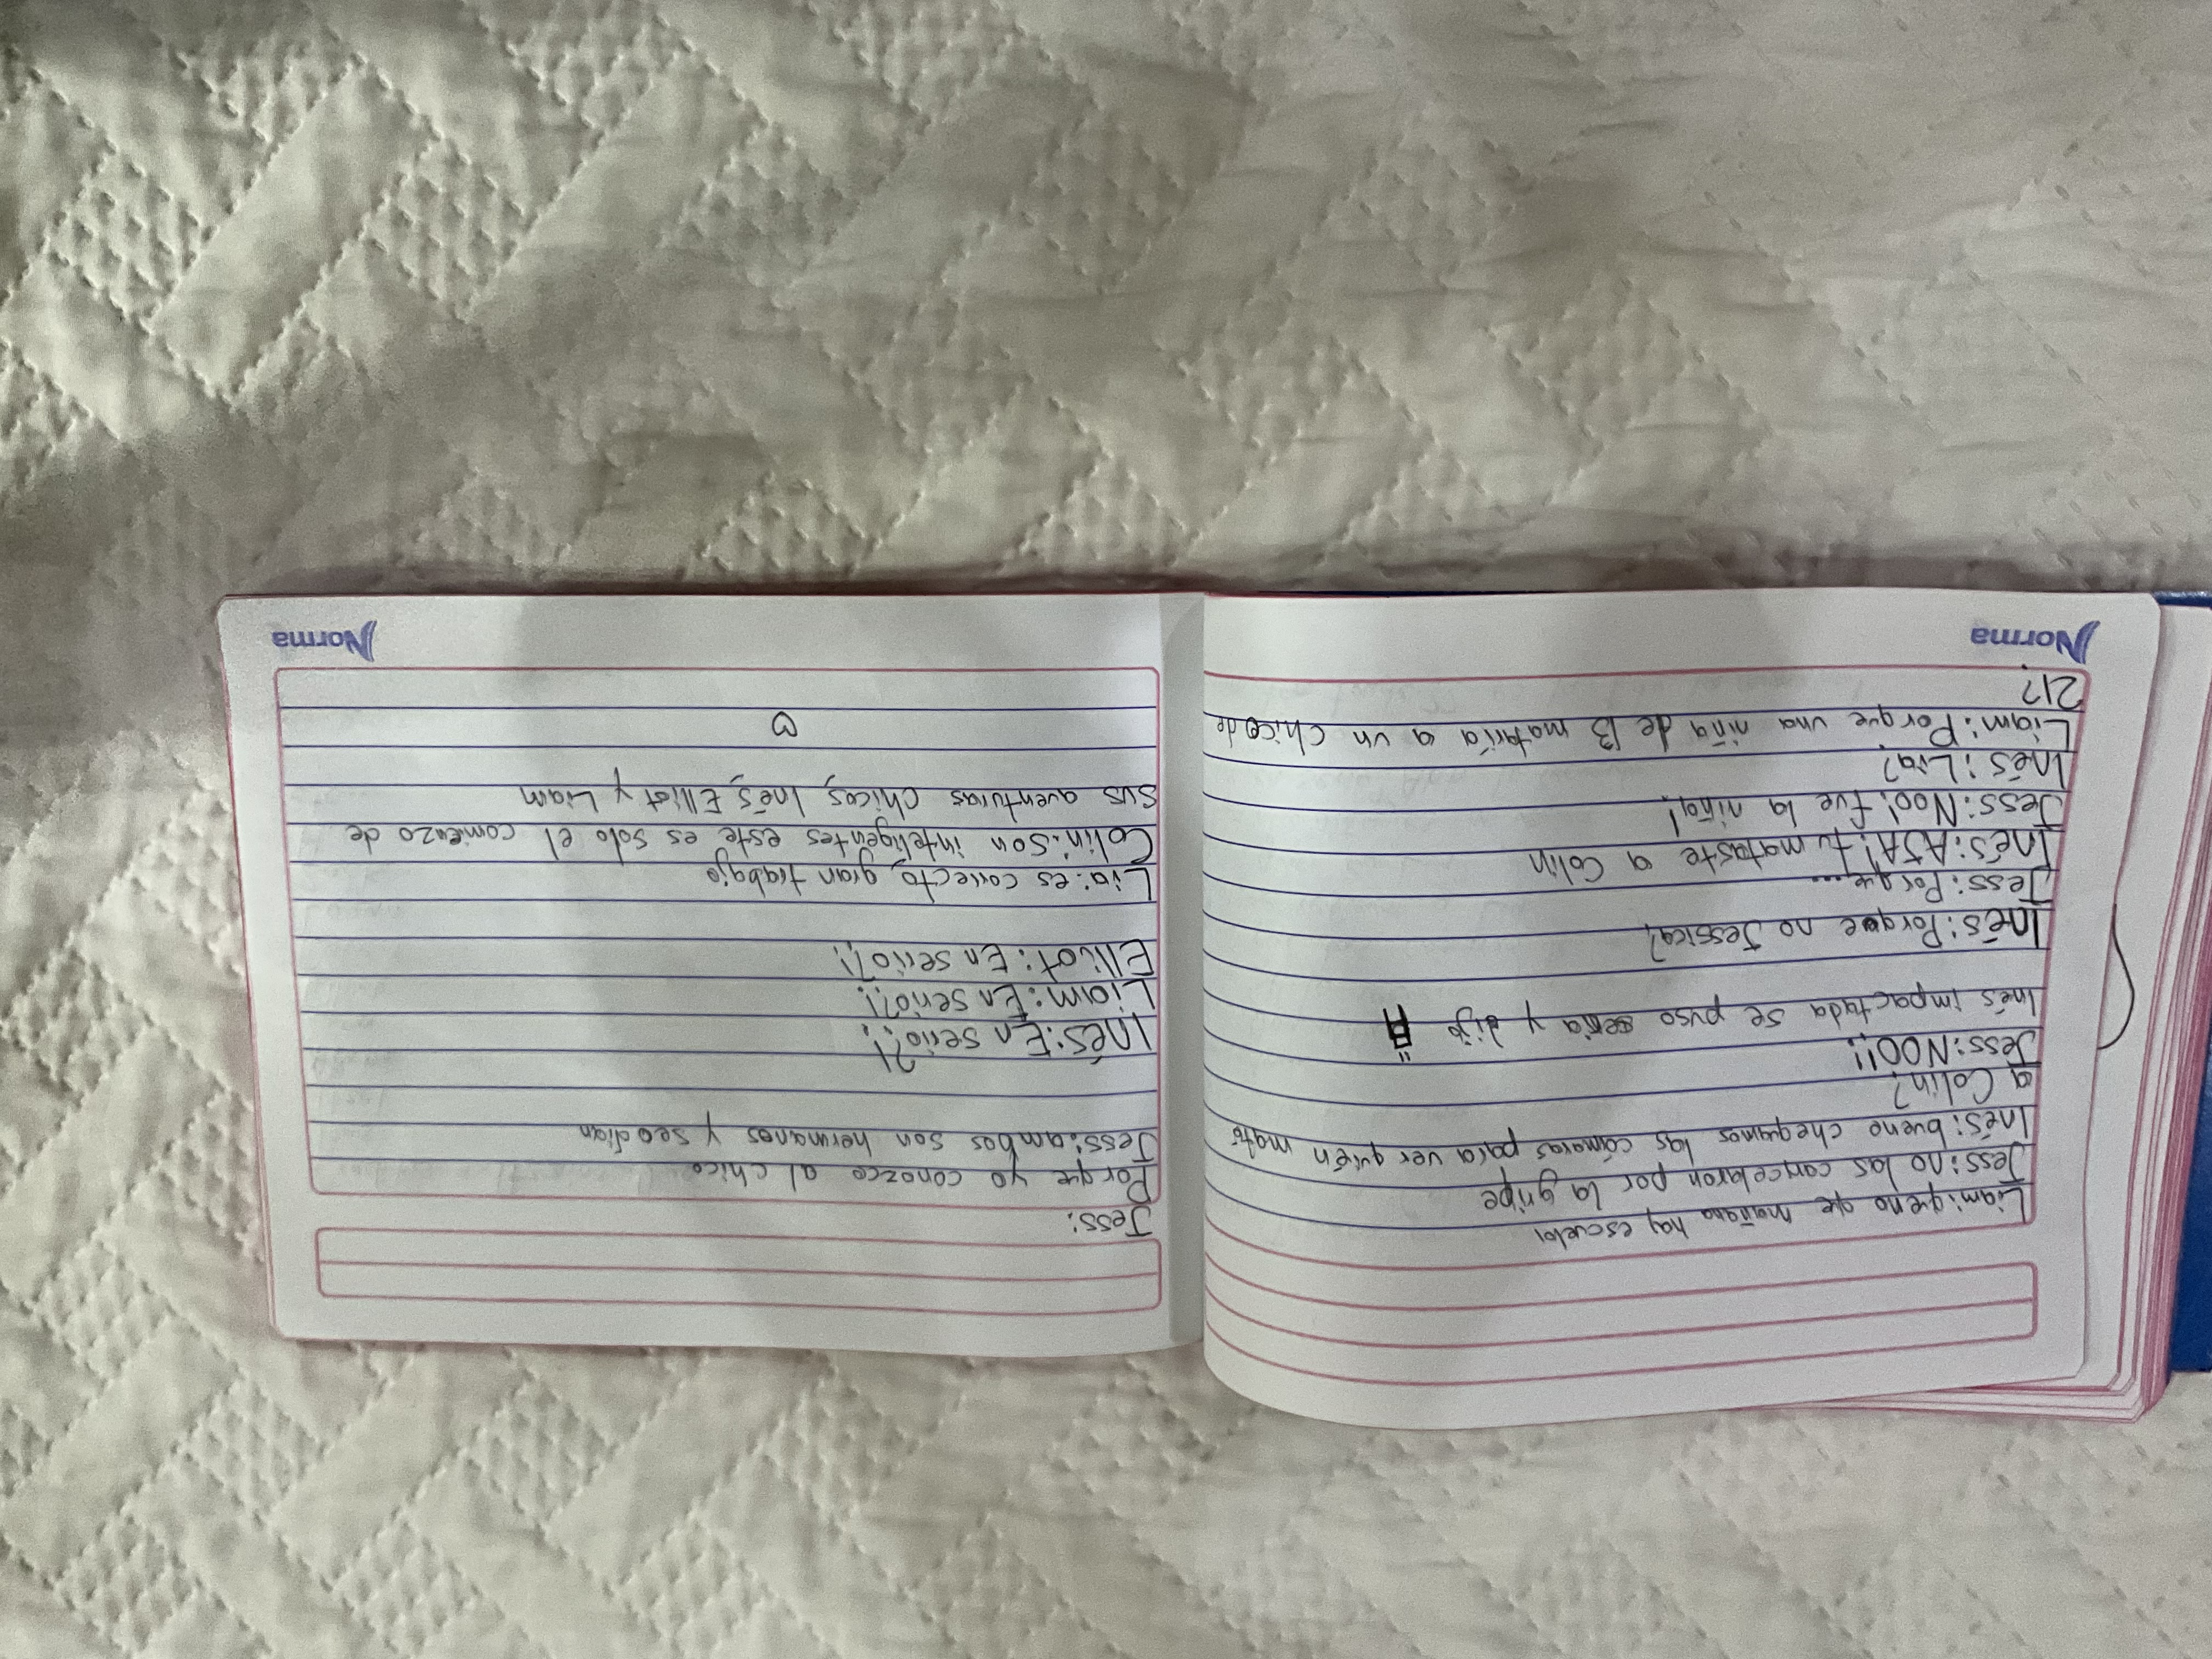 Liam: que no que mañana hay escuela
Jess: no las cancelaron por la gripe
Inés: bueno chequemos las cámaras para ver quién mató
a Colin?
Jess: NOO!!
Inés impactada se puso seria y dijo
Inés: Porque no Jessica?
Jess: Porque...
Inés: AJA! tu mataste a Colin
Jess: Noo! fue la niña!
Inés: Lia?
Liam: Porque una niña de 13 mataría a un chico de
21?
Norma
Jess:
Porque yo conozco al chico
Jess: ambos son hermanos y se odian
Inés: En serio?!
Liam: En serio?!
Elliot: En serio?!
Lia: es correcto, gran trabajo
Colin: Son inteligentes este es solo el comienzo de
sus aventuras chicos, Inés, Elliot y Liam
Norma